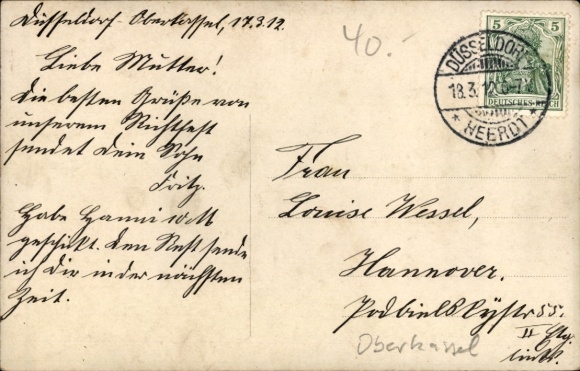 Düsseldorf-Oberkassel, 17.3.12.
Liebe Mutter!
Die besten Grüße von
unserem Richtfest
sendet Dein Sohn
Fritz.
Habe Hanni 10 M
geschickt. Den Rest sende
ich Dir in der nächsten
Zeit.
40.-
5 5
DEUTSCHES REICH
DÜSSELDORF
18.3.12. 6-7
* HEERDT *
Frau
Louise Wessel,
Hannover.
Podbielskystr 55.
II Etg.
links.
Oberkassel